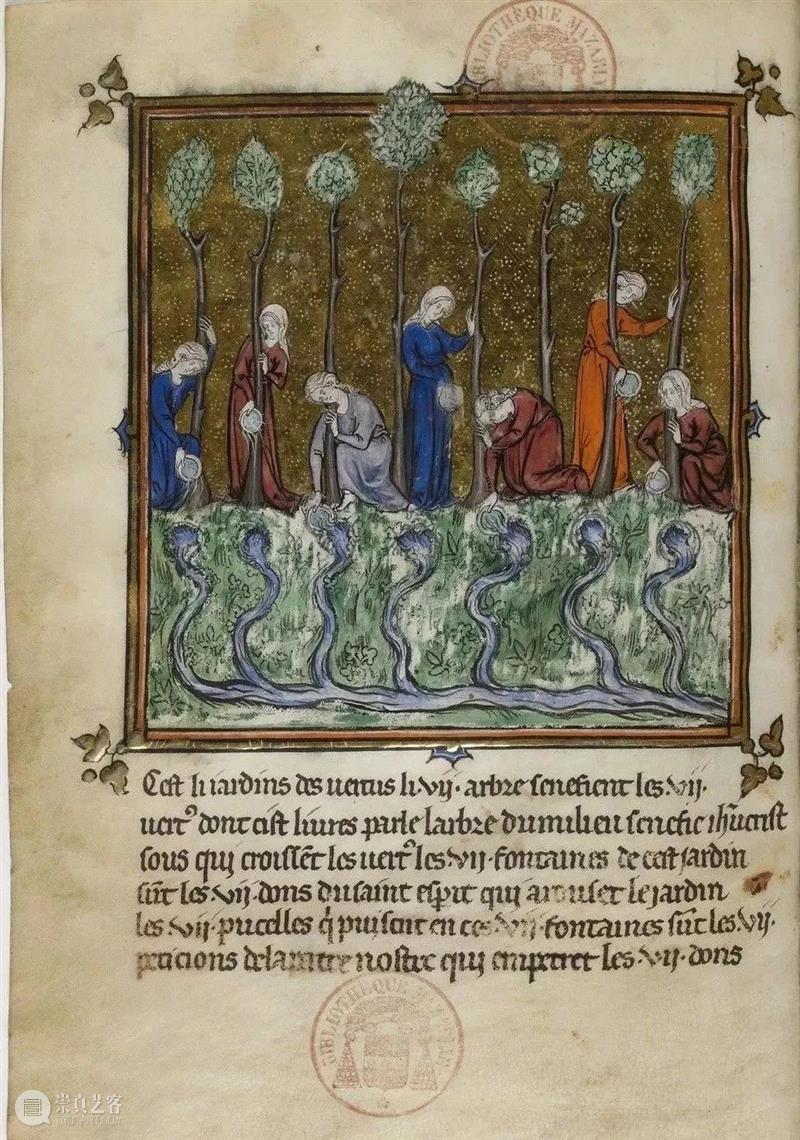 BIBLIOTHÈQUE MAZARIN
Cest li iardins des uertus li .vij. arbre senefient les .vij.
uertꝰ dont cist liures parle larbre du milieu senefie ihūcrist
sous qui croissēt les uertꝰ les .vij. fontaines de cest jardin
sūt les .vij. dons du saint esprit qui arouset le jardin
les .vij. pucelles q̄ puisent en ces .vij. fontaines sūt les .vij.
peticions de la patre nostre qui empetret les .vij. dons
BIBLIOTHÈQUE MAZARIN
崇真艺客